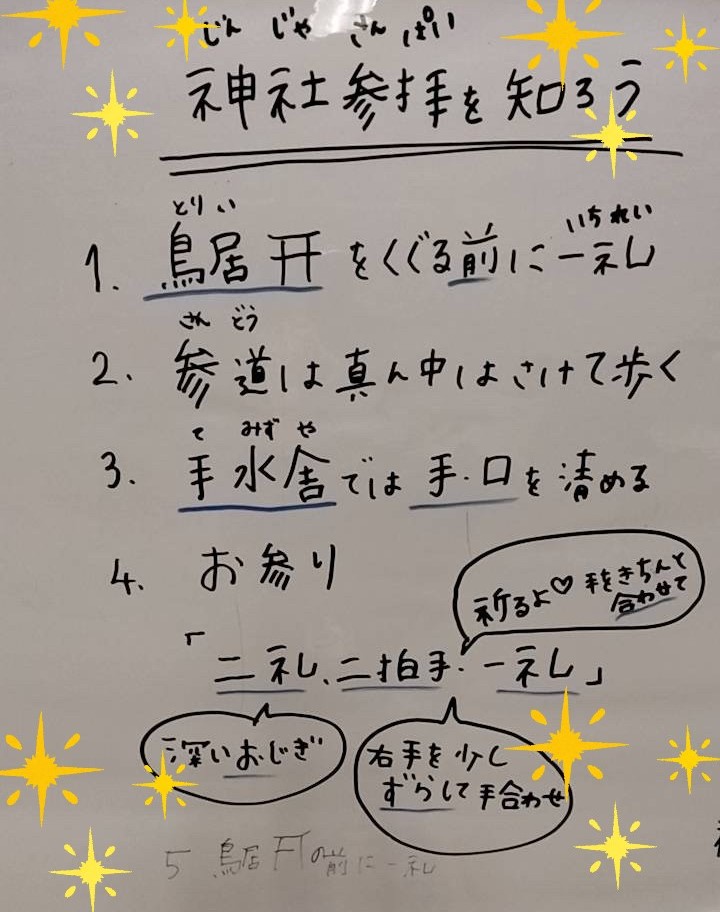 じんじゃさんぱい
神社参拝を知ろう
とりい いちれい
1. 鳥居⛩をくぐる前に一礼
さんどう
2. 参道は真ん中はさけて歩く
てみずや
3. 手水舎では手・口を清める
4. お参り
祈るよ♡ 手をきちんと
合わせて
「二礼、二拍手・一礼」
深いおじぎ
右手を少し
ずらして手合わせ
5 鳥居⛩の前に一礼